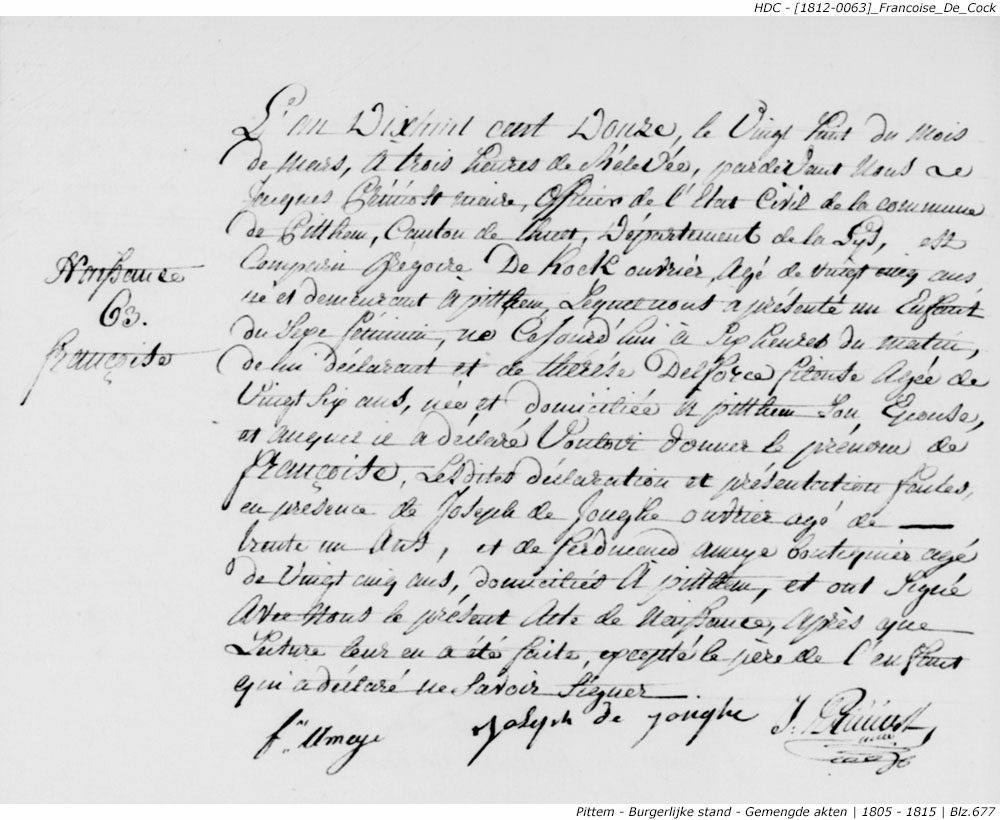 HDC - [1812-0063]_Francoise_De_Cock
L'an Dixhuit cent Douze, le Vingt huit du mois
de Mars, à trois heures de Rélevée, pardevant Nous
Jacques maire, Officier de l'Etat Civil de la commune
de Pitthem, Canton de , Département de la Lys, est
Comparu Grégoire De kock ouvrier, agé de vingt cinq ans,
né et demeurant à pitthem, Lequel nous a présenté un Enfant
du Sexe féminin, né Cejourd'hui à Six heures du matin,
de lui déclarant et de thérése Delforce agée de
Vingt Six ans, née et domiciliée à pitthem Son Epouse,
et auquel il a déclaré Vouloir donner le prénom de
françoise, Lesdites déclaration et présentation faites,
en présence de Joseph de Jonghe ouvrier agé de —
trente un Ans, et de ferdinand ameye boutiquier agé
de Vingt cinq ans, domiciliés à pitthem, et ont Signé
Avec Nous le présent Acte de Naissance, Après que
Lecture leur en a été faite, excepté le père de l'enfant
qui a déclaré ne Savoir Signer.
Naissance
63.
françoise
f. Ameye
Joseph de jonghe
Pittem - Burgerlijke stand - Gemengde akten | 1805 - 1815 | Blz.677